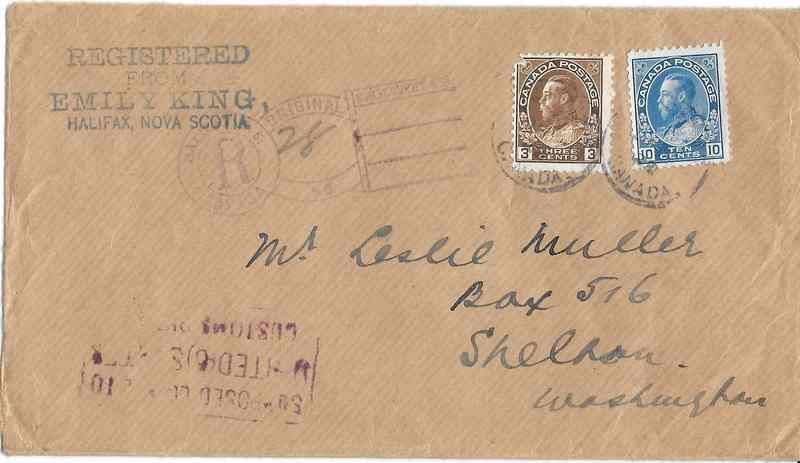 REGISTERED
FROM
EMILY KING,
HALIFAX, NOVA SCOTIA
ORIGINAL
R
28
CANADA POSTAGE
3 THREE CENTS 3
CANADA
CANADA POSTAGE
10 TEN CENTS 10
CANADA
Mr Leslie Muller
Box 516
Shelton
Washington
SUPPOSED
(6)
CUSTOMS